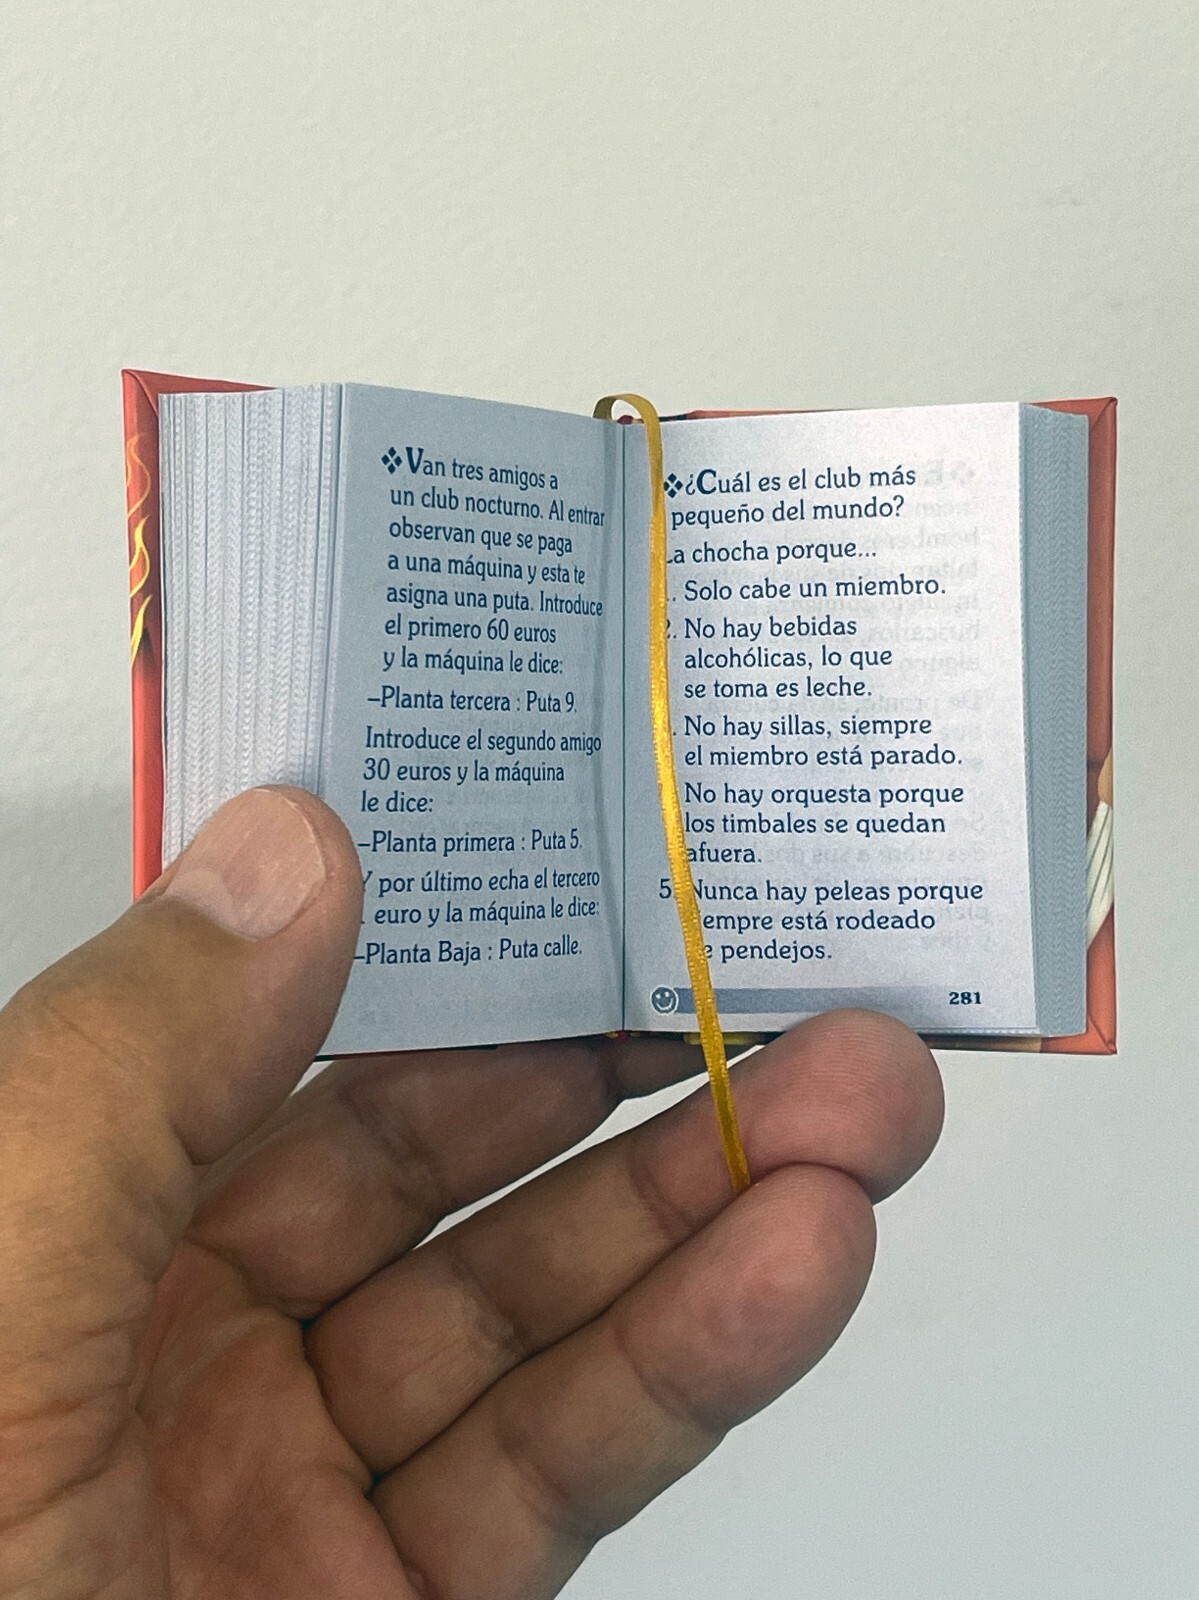 ❖Van tres amigos a
un club nocturno. Al entrar
observan que se paga
a una máquina y esta te
asigna una puta. Introduce
el primero 60 euros
y la máquina le dice:
–Planta tercera : Puta 9.
Introduce el segundo amigo
30 euros y la máquina
le dice:
–Planta primera : Puta 5.
Y por último echa el tercero
euro y la máquina le dice:
–Planta Baja : Puta calle.
❖¿Cuál es el club más
pequeño del mundo?
La chocha porque...
. Solo cabe un miembro.
2. No hay bebidas
alcohólicas, lo que
se toma es leche.
. No hay sillas, siempre
el miembro está parado.
No hay orquesta porque
los timbales se quedan
afuera.
5. Nunca hay peleas porque
está rodeado
pendejos.
281